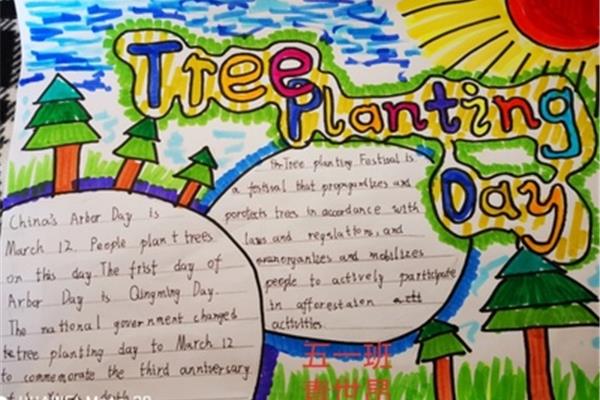 Tree
Planting
Day
China's Arbor Day is
March 12. People plant trees
on this day. The frist day of
Arbor Day is Qingming Day.
The national government changed
tree planting day to March 12
to commemorate the third anniversary
The Tree planting Festival is
a festival that propagandizes and
protects trees in accordance with
laws and regulations, and
organizes and mobilizes
people to actively participate
in afforestaion
activities.
五一班